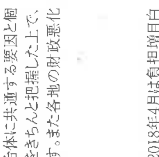 台体に共通する要因と個
をきちんと把握した上で、
す。また各地の財政悪化
2018年4月は負担増目白